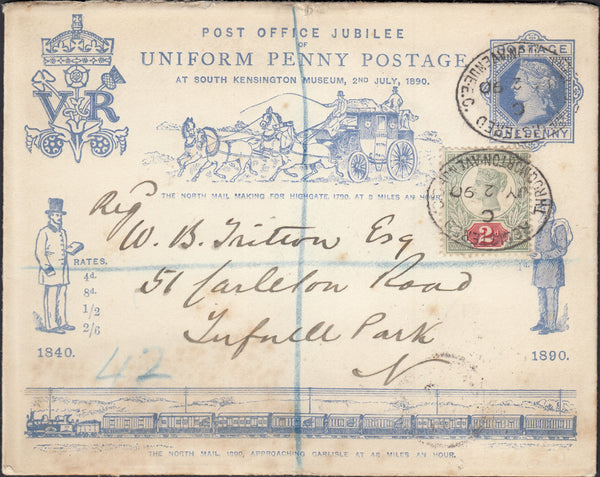 POST OFFICE JUBILEE
OF
UNIFORM PENNY POSTAGE
AT SOUTH KENSINGTON MUSEUM, 2ND JULY, 1890.
VR
POSTAGE
PENNY
THE NORTH MAIL MAKING FOR HIGHGATE, 1790, AT 8 MILES AN HOUR.
REGISTERED
AVENUE E.C.
C
2
90
THROGMORTON AVENUE
C
JY 2 90
2d
Reg
W. B. Tritton Esq
51 Carleton Road
Tufnell Park
N
RATES.
4d.
8d.
1/2
2/6
1840.
1890.
42
THE NORTH MAIL, 1890, APPROACHING CARLISLE AT 48 MILES AN HOUR.